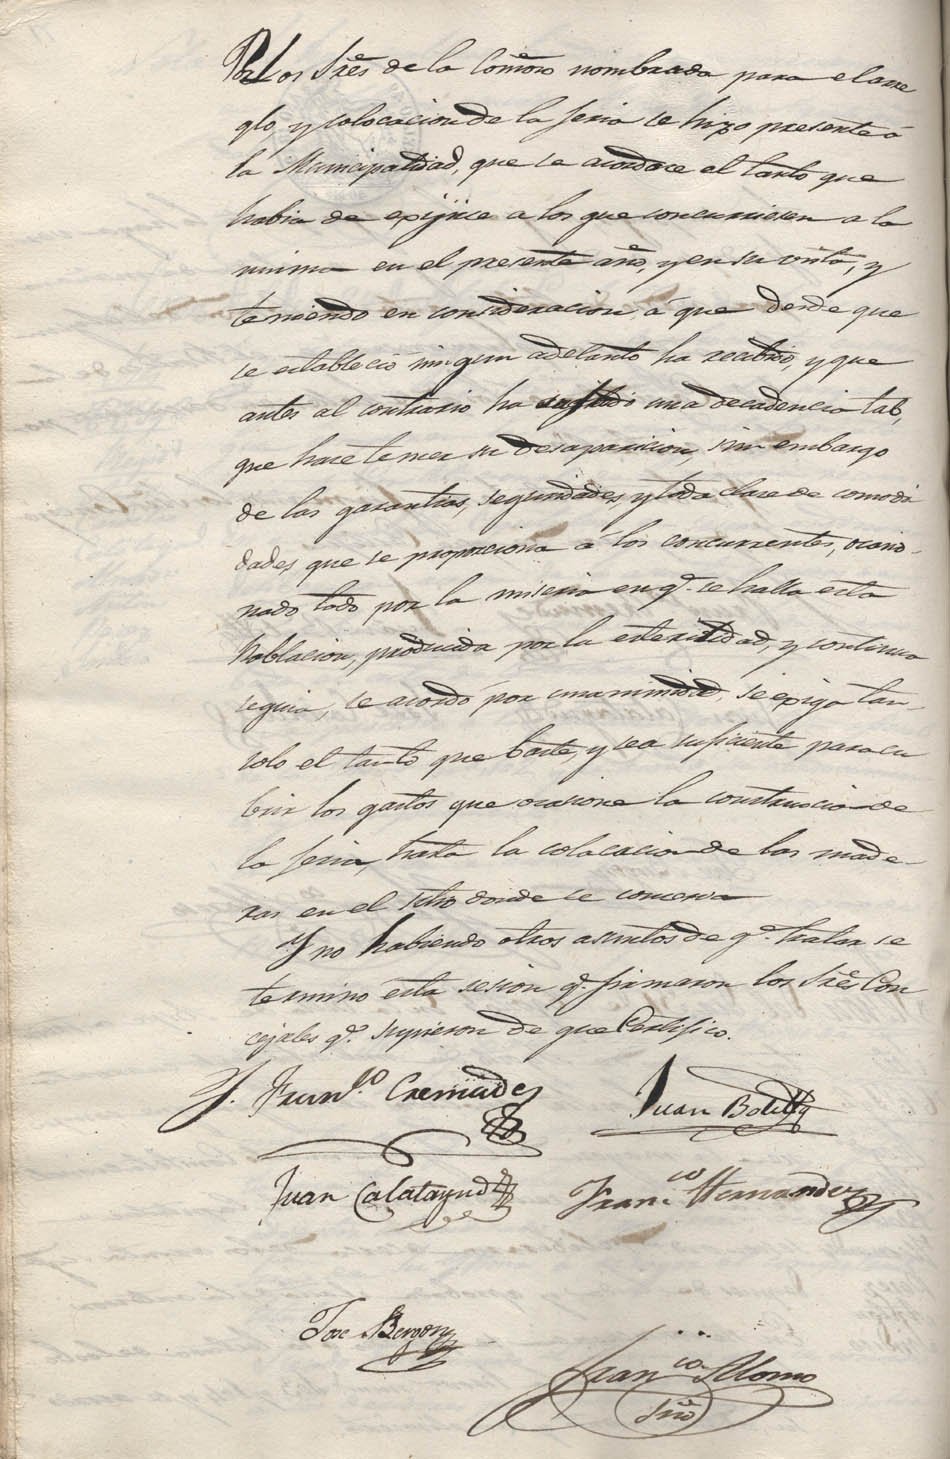 Por Los Sres de la Comon nombrada para el arre
glo, y colocacion de la feria se hizo presente á
la Municipalidad, que se acordase el tanto que
habia de exijirse a los que concurriesen a la
misma en el presente año, y en su vista, y
teniendo en consideracion, á que desde que
se establecio ningun adelanto ha recibido, y que
antes al contrario ha sufrido una decadencia tal,
que hace temer su desaparicion, sin embargo
de las garantias, seguridades, y toda clase de comodi
dades, que se proporciona á los concurrentes, ocacio-
nado todo por la miseria en q.e se halla esta
Poblacion, producida por la esterilidad, y continua
sequia, se acordó por unanimidad, se exija tan-
solo el tanto que baste, y sea suficiente para cu
brir los gastos que ocasione la construccion de
la feria, hasta la colocacion de las made-
ras en el sitio donde se conserva
Y no habiendo otros asuntos de q.e tratar se
termino esta sesion q.e firmaron los Sres Con
cejales q.e supieron de que Certifico.
Fran.co Cremades
Juan Botella
Juan Calatayud
Franco Hernandez
Jose
Franco Alonso
Srio